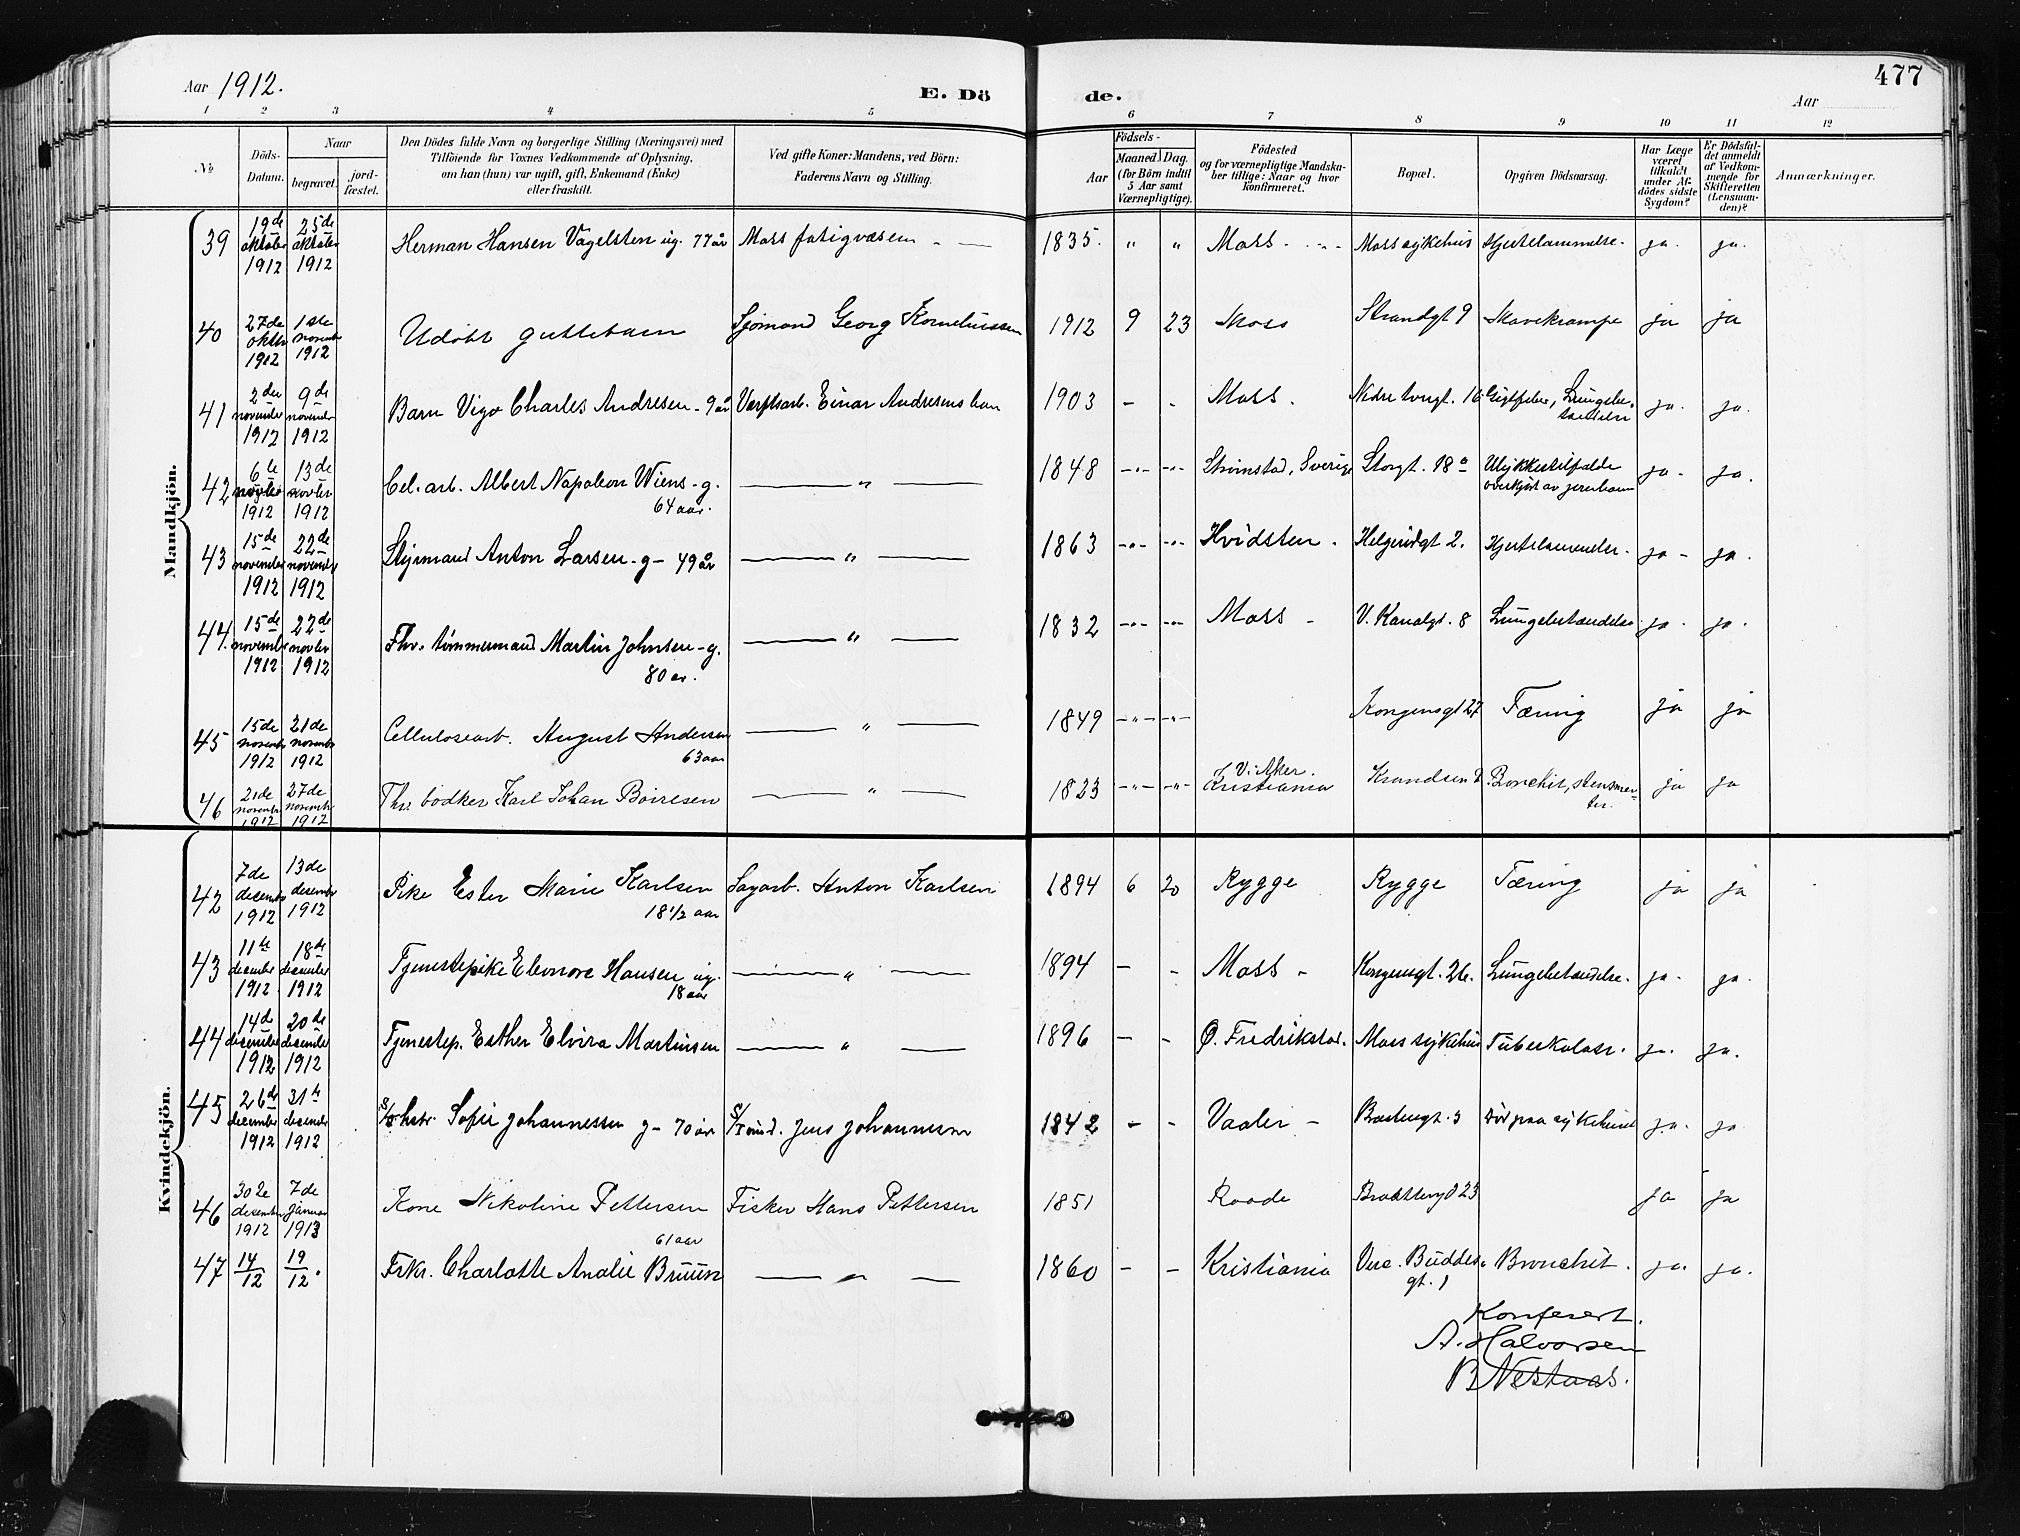 Aar 1912. E. Dö de. Aar 477
1 2 3 4 5 6 7 8 9 10 11 12
№ Döds-Datum. Naar begravet. jord-fæstet. Den Dödes fulde Navn og borgerlige Stilling (Næringsvei) med Tilföiende for Voxnes Vedkommende af Oplysning, om han (hun) var ugift, gift, Enkemand (Enke) eller fraskilt. Ved gifte Koner: Mandens, ved Börn: Faderens Navn og Stilling. Födsels- Aar Maaned Dag. (for Börn indtil 5 Aar samt Værnepligtige). Födested og for værnepligtige Mandskaber tillige: Naar og hvor konfirmeret. Bopæl. Opgiven Dödsaarsag. Har Læge været tilkaldt under Afdödes sidste Sygdom? Er Dödsfaldet anmeldt af Vedkommende for Skifteretten (Lensmanden)? Anmærkninger.
Mandkjön.
39 19de oktober 1912 25de oktober 1912 Herman Hansen Vagelsten ug. 77 år Moss fatigvæsen - — 1835. " " Moss - - - Moss sykehus Hjertelammelse. ja. ja.
40 27de oktbr 1912 1ste novembr 1912 Udöbt guttebarn Sjömand Georg Korneliussen 1912 9 23 Moss Strandgt 9 Mavekrampe ja ja
41 2den november 1912 9de november 1912 Barn Vigo Charles Andresen - 9 år Værftsarb. Einar Andresens barn 1903 - - Moss. Nedre torvgt. 16 Gigtfeber, Lungebetændelse ja. ja.
42 6te novbr 1912 13de novbr 1912 Cel. arb. Albert Napoleon Wiens - g. 64 aar. — " — 1848 -"- -"- Strömstad, Sverige Storgt. 18a Ulykkestilfælde overkjört av jernbane ja - ja.
43 15de november 1912 22de november 1912 Styrmand Anton Larsen - g - 49 år — " — 1863 -"- -"- Hvidsten. Helgerödgt 2. Hjertelammelse. ja - ja.
44. 15de november 1912 22de novbr 1912 Fhv. tömmermand Martin Johnsen - g. 80 år. — " — 1832 -"- -"- Moss - V. Kanalgt. 8 Lungebetændelse ja. ja.
45 15de novembr 1912 21de novembr 1912 Cellulosearb. August Andersen 63 aar — " — 1849 -"- -"- Kongensgt 27 Tæring ja ja
46 21de novembr 1912 27de novembr 1912 Fhv. bödker Karl Johan Boiresen — " — 1823 -"- -"- V. Aker. Kristiania Bronchit, ja ja
Kvindekjön.
42 7de desembr 1912 13de desembr 1912 Pike Ester Marie Karlsen 18 1/2 aar Sagarb. Anton Karlsen 1894 6 20 Rygge Rygge Tæring ja ja
43 11te december 1912 18de december 1912 Tjenestepike Eleonore Hansen ug. 18 aar — " — 1894 - - Moss - Kongensgt. 26. Lungebetændelse. ja. ja.
44 14de december 1912 20de december 1912 Tjenestep. Esther Elvira Martinsen — " — 1896 - - Ø. Fredrikstad. Moss sykehus Tuberkulose. ja. ja.
45 26de december 1912 31te december 1912 S/k hstr. Sofie Johannessen g - 70 år S/mnd. Jens Johannessen 1842 - - Vaaler - 3 Död paa sykehuset ja. ja
46 30te desember 1912 7de januar 1913 Kone Nikoline Pettersen 61 aar Fisker Hans Pettersen 1851 Raade 23 ja ja
47 14/12 19/12. Frkr. Charlotte Analie Bruun — " — 1860 - - Kristiania Vin. Buddes gt. 1 Bronchit. ja. ja.
Konferert.
A. Halvorsen
B. Nestaas.